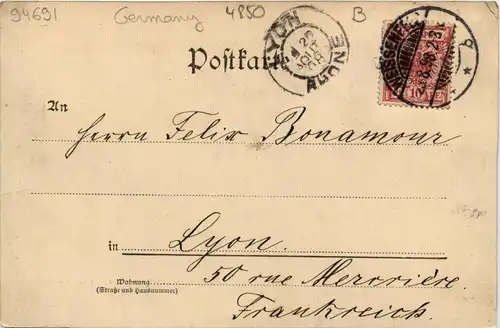 94691 Germany 4850 B
LYON RHONE 25 AOUT 98
Postkarte
10
An
Herrn Felix Bonamour
in Lyon.
Wohnung
(Straße und Hausnummer)
50 rue Mercière.
Frankreich.